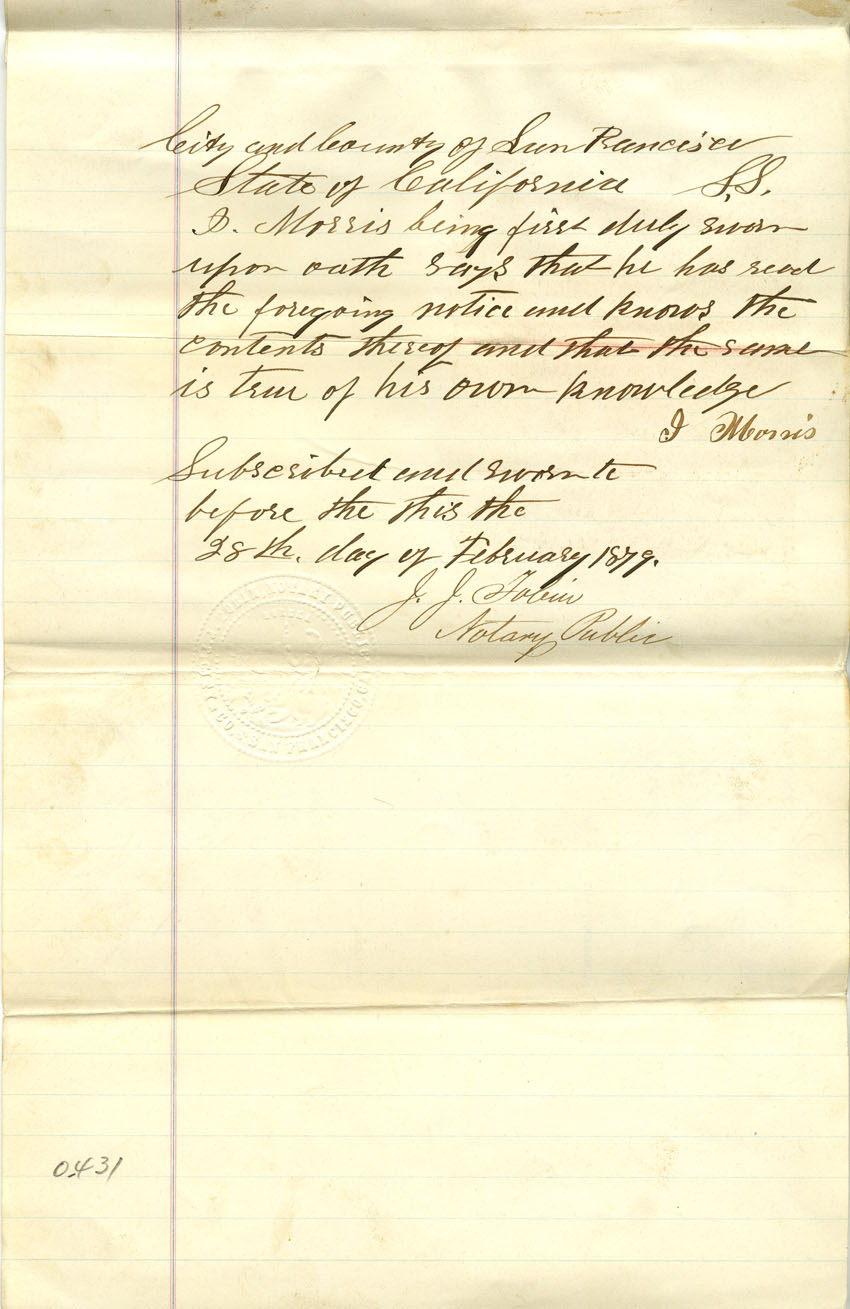 City and County of San Rancisco
State of California S.S.
I. Morris being first duly sworn
upon oath says that he has read
the foregoing notice and knows the
contents thereof and that the same
is true of his own knowledge
I Morris
Subscribed and sworn to
before the this the
28th. day of February 1879.
J. J. Tobin
Notary Public
NOTARY PUBLIC
CITY & CO. SAN FRANCISCO, CAL
0431